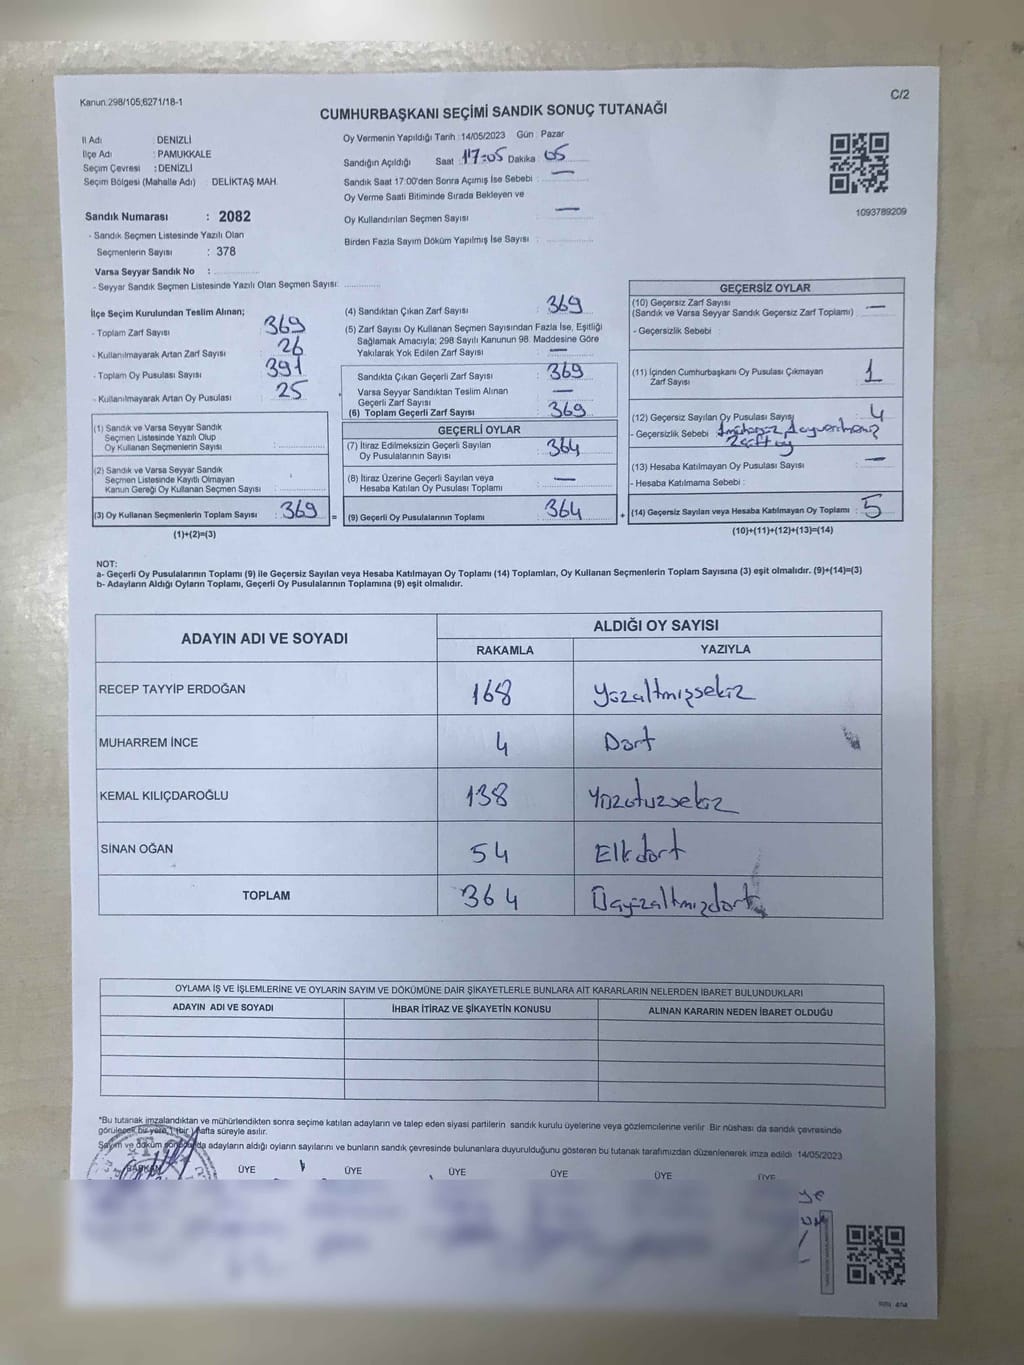 Kanun.298/105;6271/18-1
C/2
CUMHURBAŞKANI SEÇİMİ SANDIK SONUÇ TUTANAĞI
İl Adı : DENİZLİ
İlçe Adı : PAMUKKALE
Seçim Çevresi : DENİZLİ
Seçim Bölgesi (Mahalle Adı) : DELİKTAŞ MAH.
Oy Vermenin Yapıldığı Tarih :14/05/2023 Gün : Pazar
Sandığın Açıldığı Saat : 17:05 Dakika : 05
Sandık Saat 17:00'den Sonra Açımış İse Sebebi : —
Oy Verme Saati Bitiminde Sırada Bekleyen ve
Oy Kullandırılan Seçmen Sayısı : —
Birden Fazla Sayım Döküm Yapılmış İse Sayısı :
1093789209
Sandık Numarası : 2082
- Sandık Seçmen Listesinde Yazılı Olan
Seçmenlerin Sayısı : 378
Varsa Seyyar Sandık No :
- Seyyar Sandık Seçmen Listesinde Yazılı Olan Seçmen Sayısı:
İlçe Seçim Kurulundan Teslim Alınan;
- Toplam Zarf Sayısı : 369
- Kullanılmayarak Artan Zarf Sayısı : 26
- Toplam Oy Pusulası Sayısı : 391
- Kullanılmayarak Artan Oy Pusulası : 25
(1) Sandık ve Varsa Seyyar Sandık
Seçmen Listesinde Yazılı Olup
Oy Kullanan Seçmenlerin Sayısı :
(2) Sandık ve Varsa Seyyar Sandık
Seçmen Listesinde Kayıtlı Olmayan
Kanun Gereği Oy Kullanan Seçmen Sayısı :
(3) Oy Kullanan Seçmenlerin Toplam Sayısı : 369
(1)+(2)=(3)
(4) Sandıktan Çıkan Zarf Sayısı : 369
(5) Zarf Sayısı Oy Kullanan Seçmen Sayısından Fazla İse, Eşitliği
Sağlamak Amacıyla; 298 Sayılı Kanunun 98. Maddesine Göre
Yakılarak Yok Edilen Zarf Sayısı : —
Sandıkta Çıkan Geçerli Zarf Sayısı : 369
Varsa Seyyar Sandıktan Teslim Alınan
Geçerli Zarf Sayısı : —
(6) Toplam Geçerli Zarf Sayısı : 369
GEÇERLİ OYLAR
(7) İtiraz Edilmeksizin Geçerli Sayılan
Oy Pusulalarının Sayısı : 364
(8) İtiraz Üzerine Geçerli Sayılan veya
Hesaba Katılan Oy Pusulası Toplamı : —
= (9) Geçerli Oy Pusulalarının Toplamı : 364
GEÇERSİZ OYLAR
(10) Geçersiz Zarf Sayısı
(Sandık ve Varsa Seyyar Sandık Geçersiz Zarf Toplamı) : —
- Geçersizlik Sebebi :
(11) İçinden Cumhurbaşkanı Oy Pusulası Çıkmayan
Zarf Sayısı : 1
(12) Geçersiz Sayılan Oy Pusulası Sayısı : 4
- Geçersizlik Sebebi :
(13) Hesaba Katılmayan Oy Pusulası Sayısı : —
- Hesaba Katılmama Sebebi :
+ (14) Geçersiz Sayılan veya Hesaba Katılmayan Oy Toplamı : 5
(10)+(11)+(12)+(13)=(14)
NOT:
a- Geçerli Oy Pusulalarının Toplamı (9) ile Geçersiz Sayılan veya Hesaba Katılmayan Oy Toplamı (14) Toplamları, Oy Kullanan Seçmenlerin Toplam Sayısına (3) eşit olmalıdır. (9)+(14)=(3)
b- Adayların Aldığı Oyların Toplamı, Geçerli Oy Pusulalarının Toplamına (9) eşit olmalıdır.
ADAYIN ADI VE SOYADI
ALDIĞI OY SAYISI
RAKAMLA YAZIYLA
RECEP TAYYİP ERDOĞAN 168 Yüzaltmışsekiz
MUHARREM İNCE 4 Dört
KEMAL KILIÇDAROĞLU 138 Yüzotuzsekiz
SİNAN OĞAN 54 Ellidört
TOPLAM 364 Üçyüzaltmışdört
OYLAMA İŞ VE İŞLEMLERİNE VE OYLARIN SAYIM VE DÖKÜMÜNE DAİR ŞİKAYETLERLE BUNLARA AİT KARARLARIN NELERDEN İBARET BULUNDUKLARI
ADAYIN ADI VE SOYADI İHBAR İTİRAZ VE ŞİKAYETİN KONUSU ALINAN KARARIN NEDEN İBARET OLDUĞU
*Bu tutanak imzalandıktan ve mühürlendikten sonra seçime katılan adayların ve talep eden siyasi partilerin sandık kurulu üyelerine veya gözlemcilerine verilir. Bir nüshası da sandık çevresinde
görülecek bir yere 1 (bir) hafta süreyle asılır.
Sayım ve döküm sonunda adayların aldığı oyların sayılarını ve bunların sandık çevresinde bulunanlara duyurulduğunu gösteren bu tutanak tarafımızdan düzenlenerek imza edildi. 14/05/2023
BAŞKAN ÜYE ÜYE ÜYE ÜYE ÜYE ÜYE